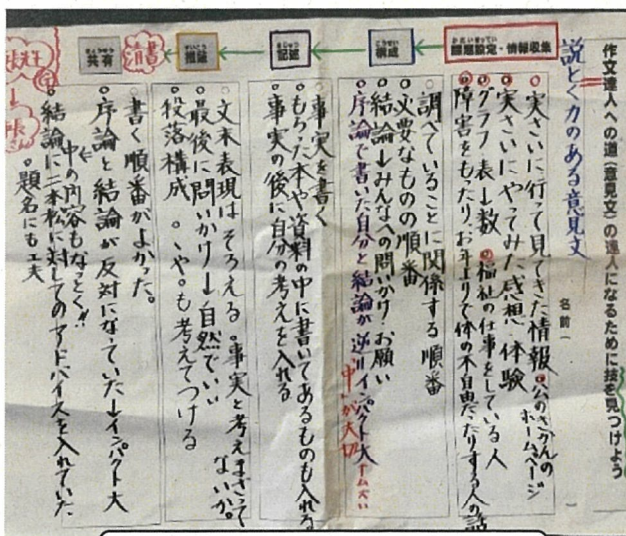 作文達人への道(意見文)の達人になるために技を見つけよう
名前(
説とく力のある意見文
かだいせってい
課題設定・情報収集
○実さいに行って見てきた情報 ◎公のきかんのホームページ
○実さいにやってみた感想 体験
◎グラフ 表→数 ◎福祉の仕事をしている人
◎障害をもったり、お年よりで体の不自由だったりする人の話
こうせい
構成
調べていることに関係する順番
○必要なものの順番
○結論→みんなへの問いかけ・お願い
○序論で書いた自分と結論が逆→インパクト大
中が大切
きじゅつ
記述
○事実を書く
○もらった本や資料の中に書いてあるものも入れる。
○事実の後に自分の考えを入れる
すいこう
推敲
○文末表現はそろえる ○事実と考えまざってないか。
○最後に問いかけ→自然でいい
○段落構成 。、や。も考えてつける
清書
きょうゆう
共有
○書く順番がよかった。
○序論と結論が反対になっていた→インパクト大
中の内容もなっとく!!
○結論に二本松に対してのアドバイスを入れていた
○題名にも工夫